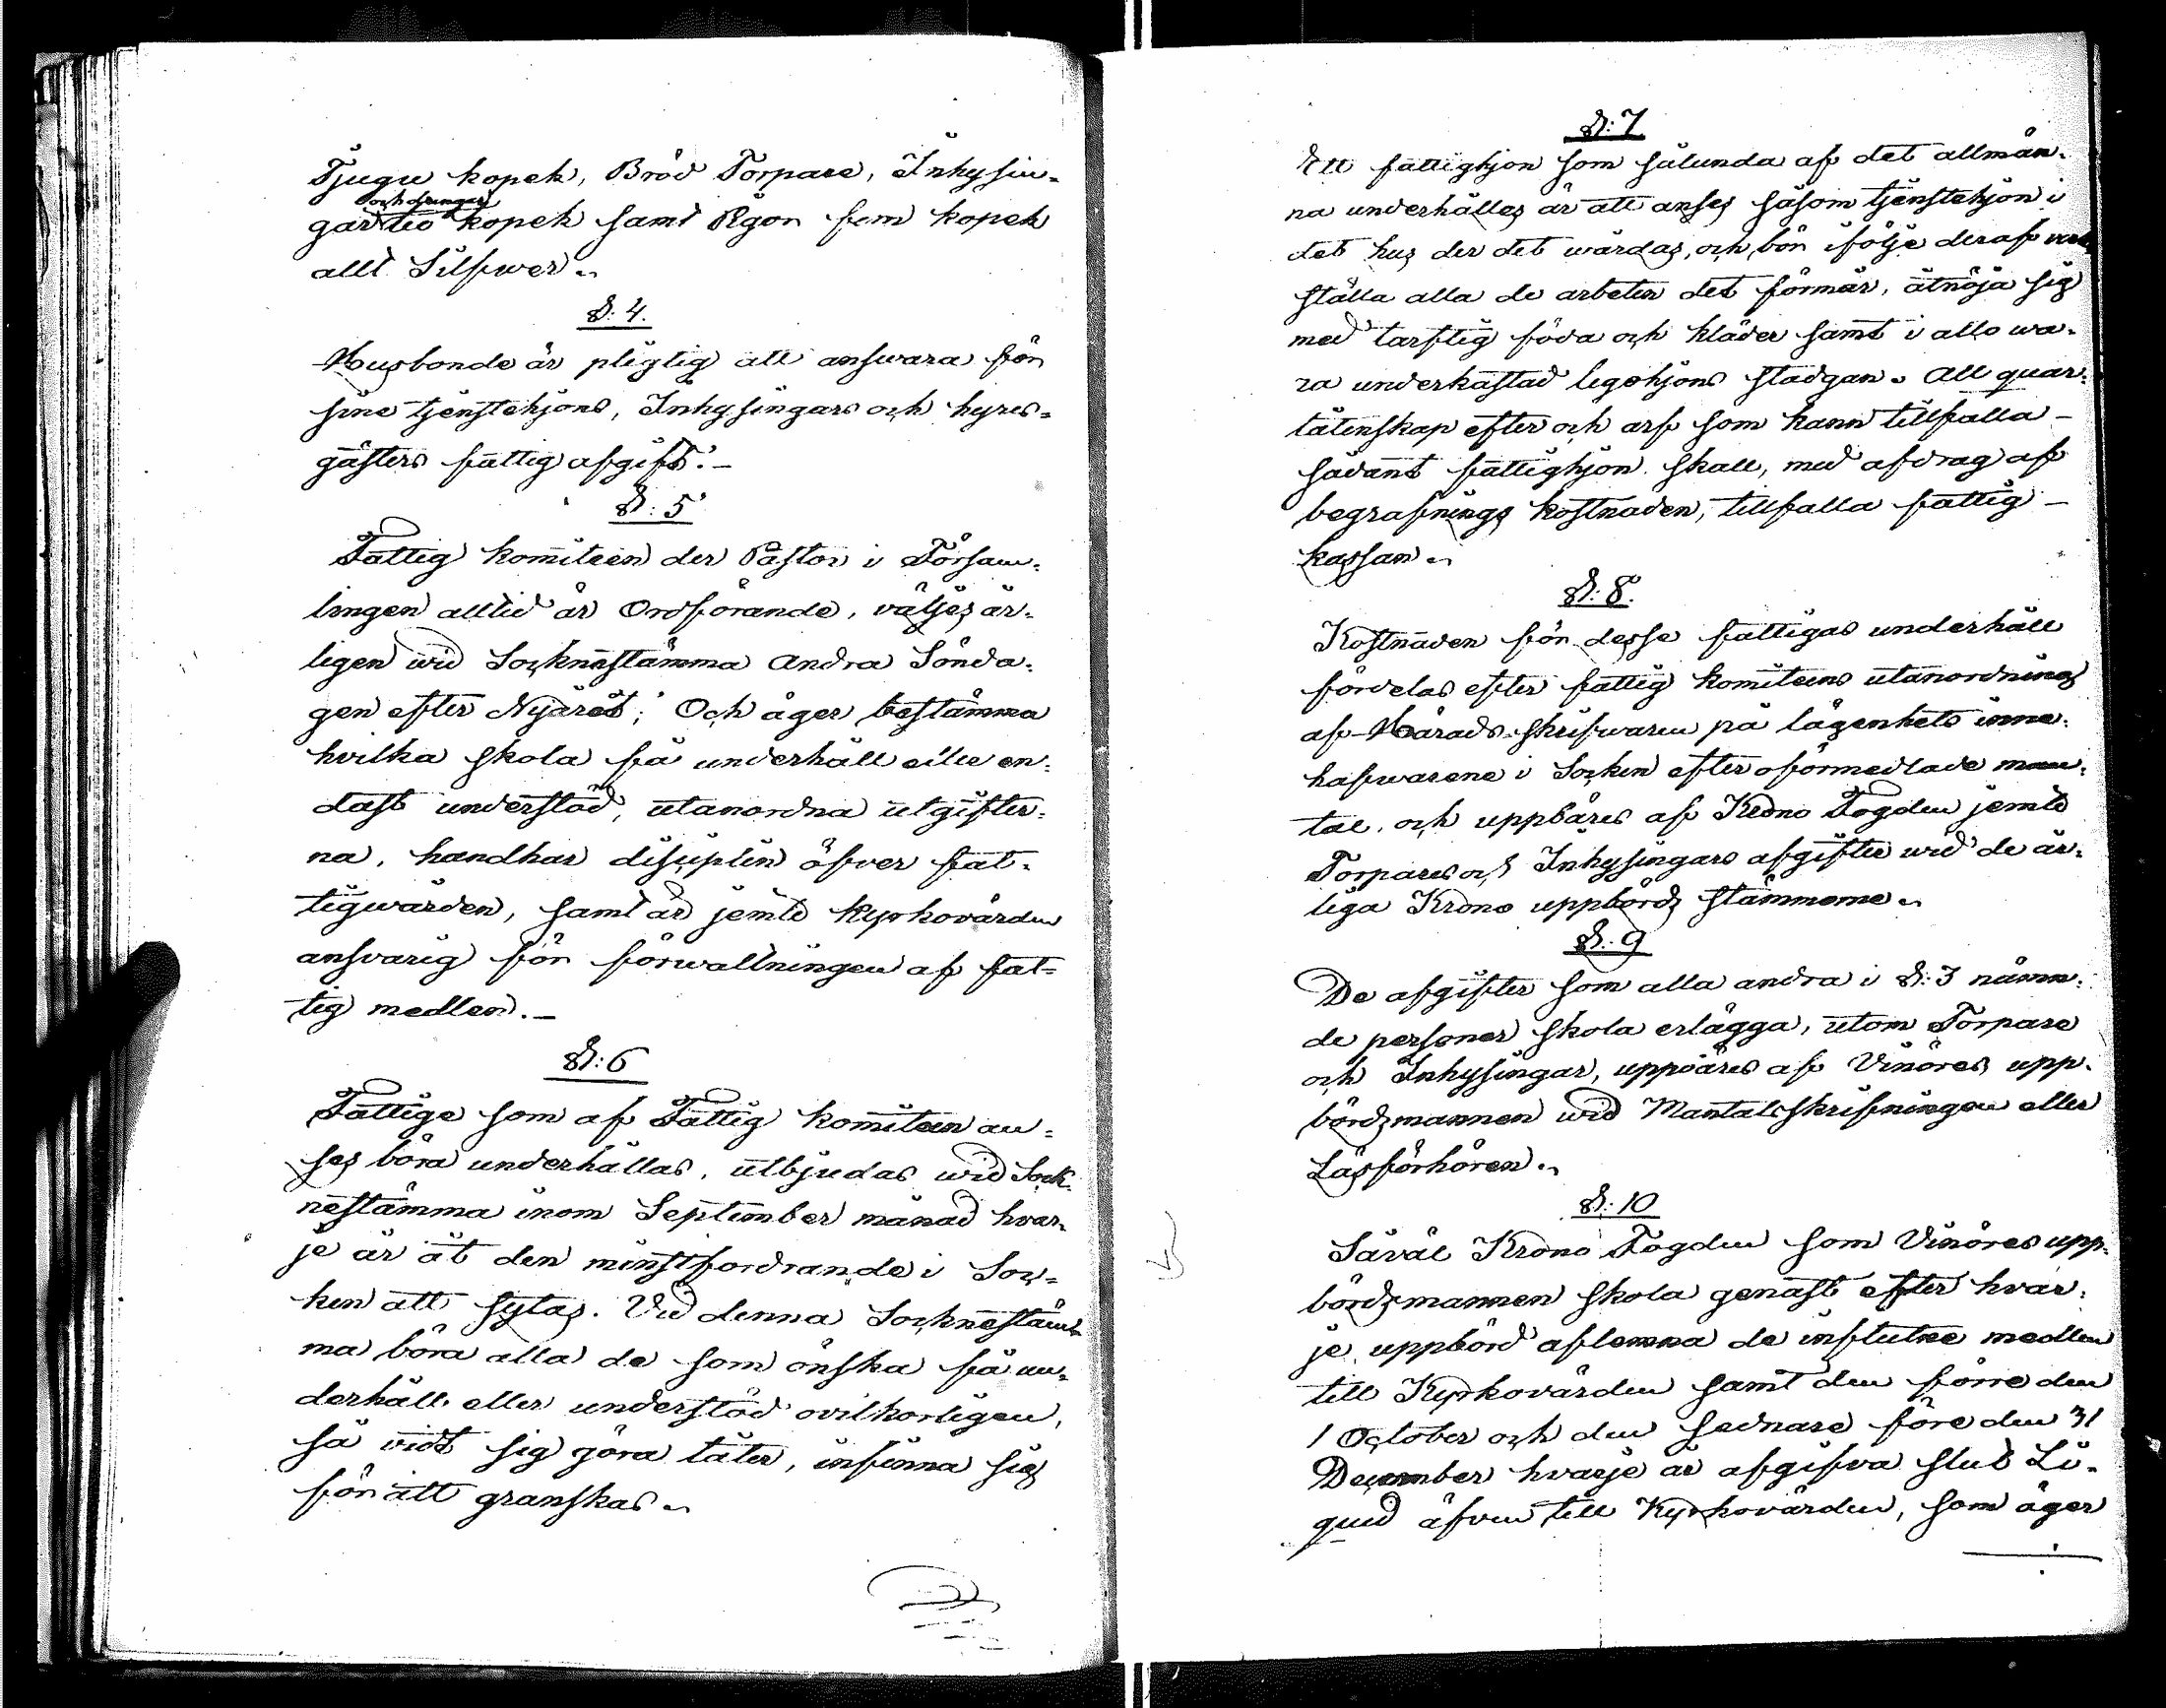 Tjugu kopek, Bröd Torpare, Inhysin-
och drängar
gar tio kopek samt Pigor fem kopek
allt Silfwer.
§: 4.
Husbonde är pligtig att answara för
sine tjenstehjons, Inhysingars och hyres-
gästers fattig afgift.-
§: 5
Fattig komiteen der Pastor i Försam-
lingen alltid är Ordförande, väljes år-
ligen wid Socknestämma Andra Sönda-
gen efter Nyåret; Och äger bestämma
hvilka skola få underhåll eller en-
dast understöd, utanordna utgifter-
na, handhar disciplin öfver fat-
tigwården, samt är jemte Kyrkovärden
ansvarig för förwaltningen af fat-
tig medlen.-
§: 6
Fattige som af Fattig komiteen an-
ses böra underhållas, utbjudas wid Sock-
nestämma inom September månad hvar-
je år åt den minstfordrande i Soc-
ken att sytas. Vid denna Socknestäm-
ma böra alla de som önska få un-
derhåll eller understöd ovilkorligen,
så vidt sig göra låter, infinna sig
för att granskas.
§: 7
Ett fattighjon som sålunda af det allmän-
na underhålles är att anses såsom tjenstehjon i
det hus der det wårdas, och bör ifölje deraf verk-
ställa alla de arbeten det förmår, åtnöja sig
med tarflig föda och kläder samt i allo wa-
ra underkastad legohjons stadgan. All quar-
låtenskap efter och arf som kann tillfalla-
sådant fattighjon skall, med afdrag af
begrafnings kostnaden, tillfalla fattig-
kassan.
§: 8.
Kostnaden för desse fattigas underhåll
fördelas efter fattig komiteens utanordning
af Härads skrifwaren på lägenhets inne-
hafwarene i Socken efter oförmedlade man-
tal, och uppbäres af Krono Fogden jemte
Torpares och Inhysingars afgifter wid de år-
liga Krono uppbörds stämmorne.
§: 9
De afgifter som alla andra i §: 3 nämn-
de personer skola erlägga, utom Torpare
och Inhysingar, uppbäres af Vinöres upp-
bördsmannen wid Mantalsskrifningen eller
Läsförhören.
§: 10
Såväl Krono Fogden som Vinöres upp-
bördsmannen skola genast efter hvar-
je uppbörd aflemna de influtne medlen
till Kyrkovärden samt den förre den
1 October och den sednare före den 31
December hvarje år afgifva slut Li-
quid äfven till Kyrkovärden, som äger